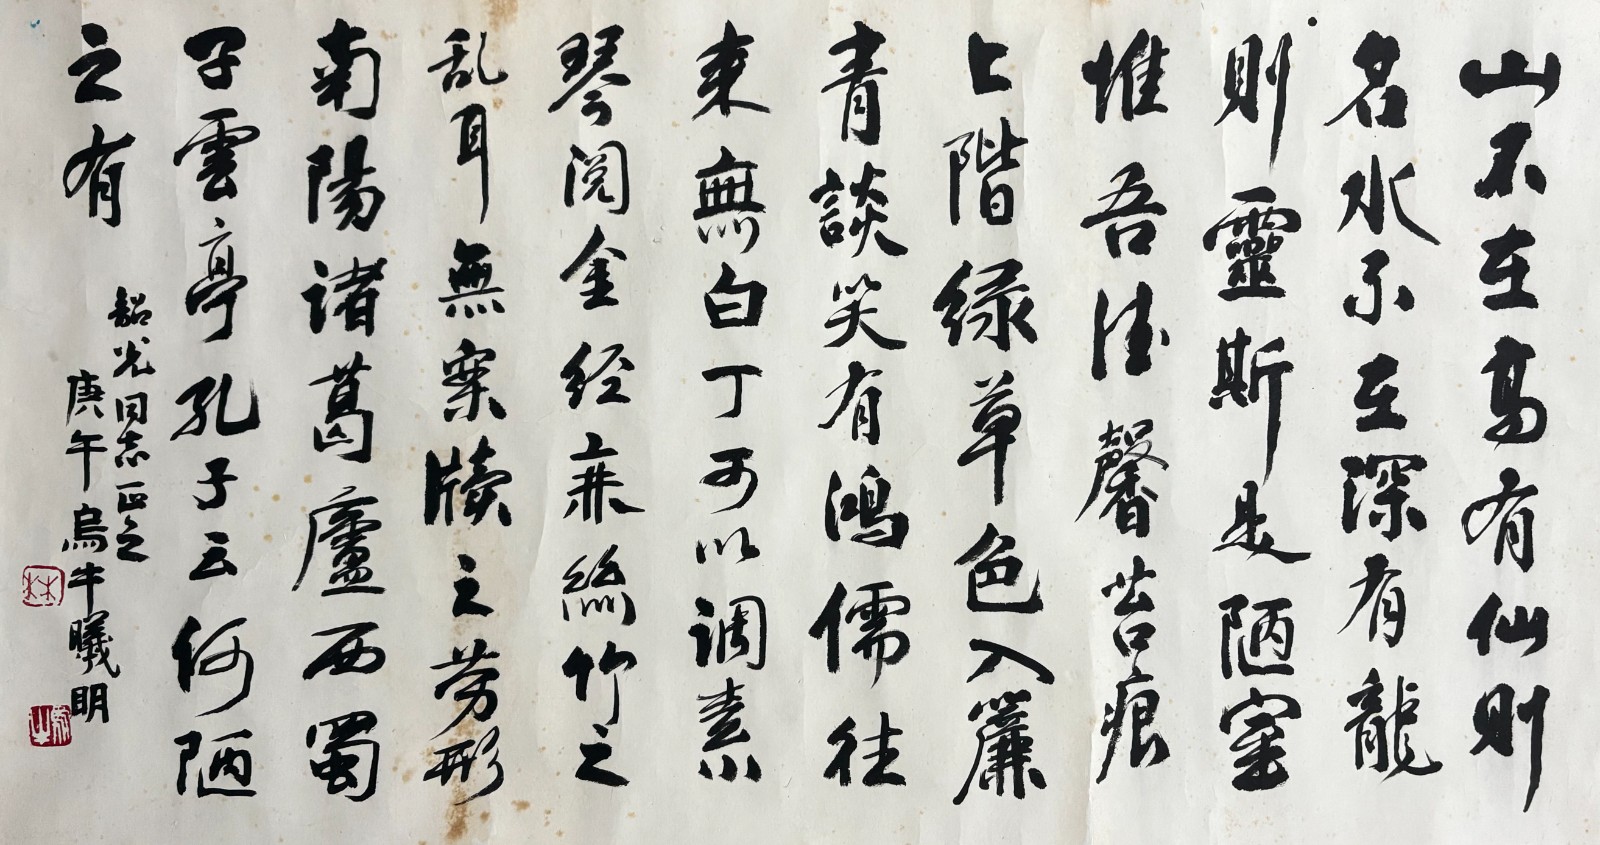 山不在高有仙則
名水不在深有龍
則靈斯是陋室
惟吾德馨苔痕
上階緑草色入簾
青談笑有鴻儒往
来無白丁可以调素
琴阅金经無絲竹之
乱耳無案牍之劳形
南陽諸葛廬西蜀
子雲亭孔子云何陋
之有
韶光同志正之
庚午烏牛曦明
林